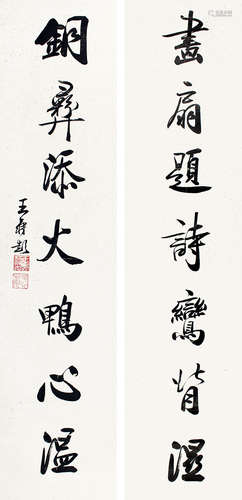 畫扇題詩鸞背濕
銅彝添火鴨心溫
王